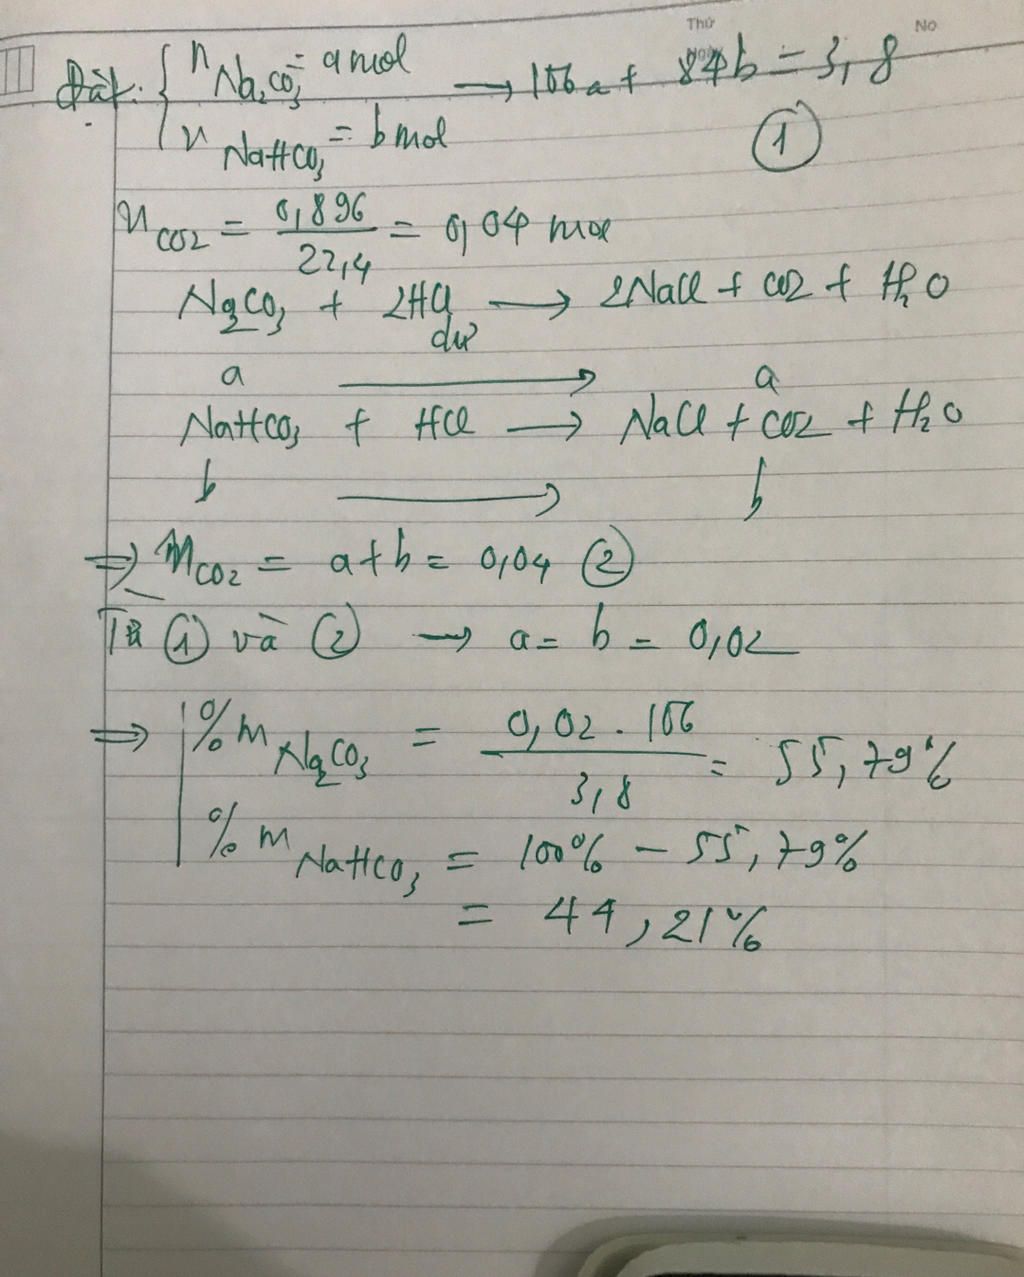 Thứ No
Đặt: { n Na2CO3 = a mol → 106a + 84b = 3,8
n NaHCO3 = b mol ①
n CO2 = 0,896 / 22,4 = 0,04 mol
Na2CO3 + 2HCl → 2NaCl + CO2 + H2O
dư
a → a
NaHCO3 + HCl → NaCl + CO2 + H2O
b → b
⇒ n CO2 = a + b = 0,04 ②
Từ ① và ② → a = b = 0,02
⇒ % m Na2CO3 = 0,02 . 106 / 3,8 = 55,79%
% m NaHCO3 = 100% - 55,79%
= 44,21%